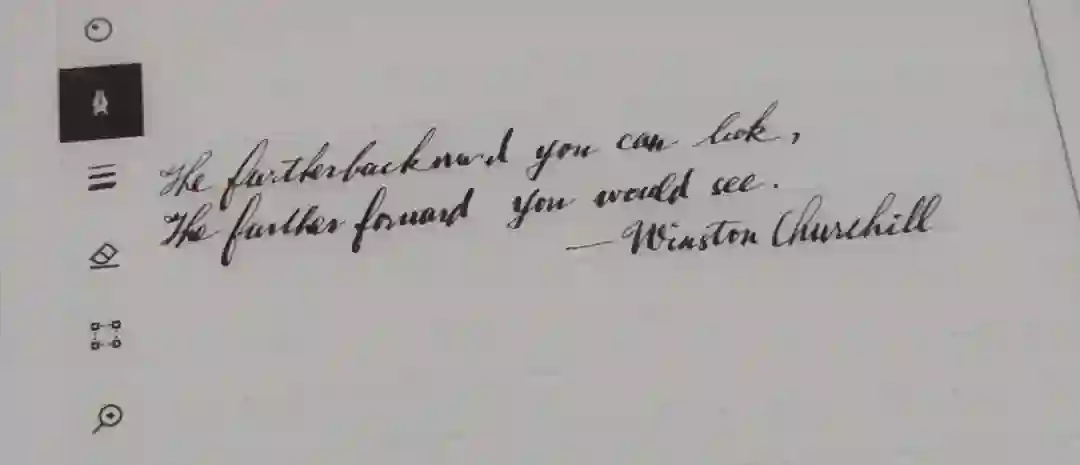 The further backward you can look,
The further forward you would see.
— Winston Churchill